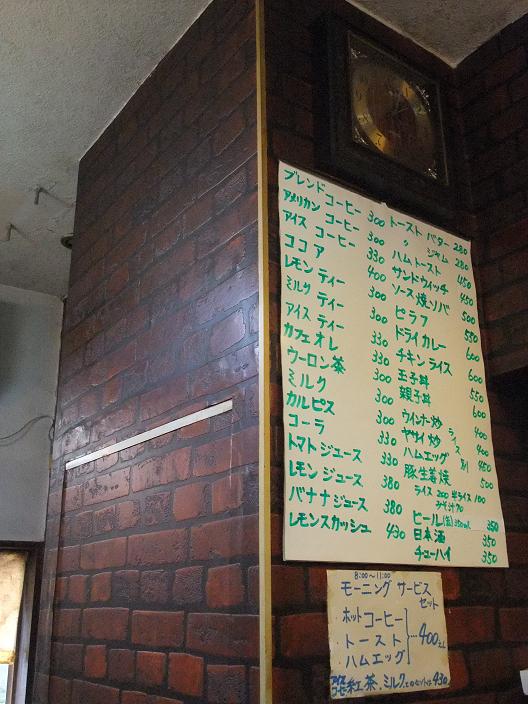 ブレンドコーヒー 300
アメリカン コーヒー 300
アイス コーヒー 330
ココア 400
レモン ティー 300
ミルク ティー 300
アイス ティー 330
カフェオレ 330
ウーロン茶 300
ミルク 300
カルピス 330
コーラ 330
トマトジュース 330
レモンジュース 380
バナナジュース 380
レモンスカッシュ 430
トースト バター 280
〃 ジャム 280
ハムトースト 450
サンドウィッチ 450
ソース焼ソバ 500
ピラフ 550
ドライカレー 600
チキンライス 600
玉子丼 550
親子丼 600
ウインナー炒 400
ヤサイ炒 400
ハムエッグ 450
豚生姜焼 500
ライス別
ライス 200 半ライス 100
みそ汁 70
ビール(缶)350ml 350
日本酒 350
チューハイ 350
8:00〜11:00
モーニング サービス
セット
ホットコーヒー
トースト
ハムエッグ
400エん
アイスコーヒー 紅茶、ミルクとのセットは430